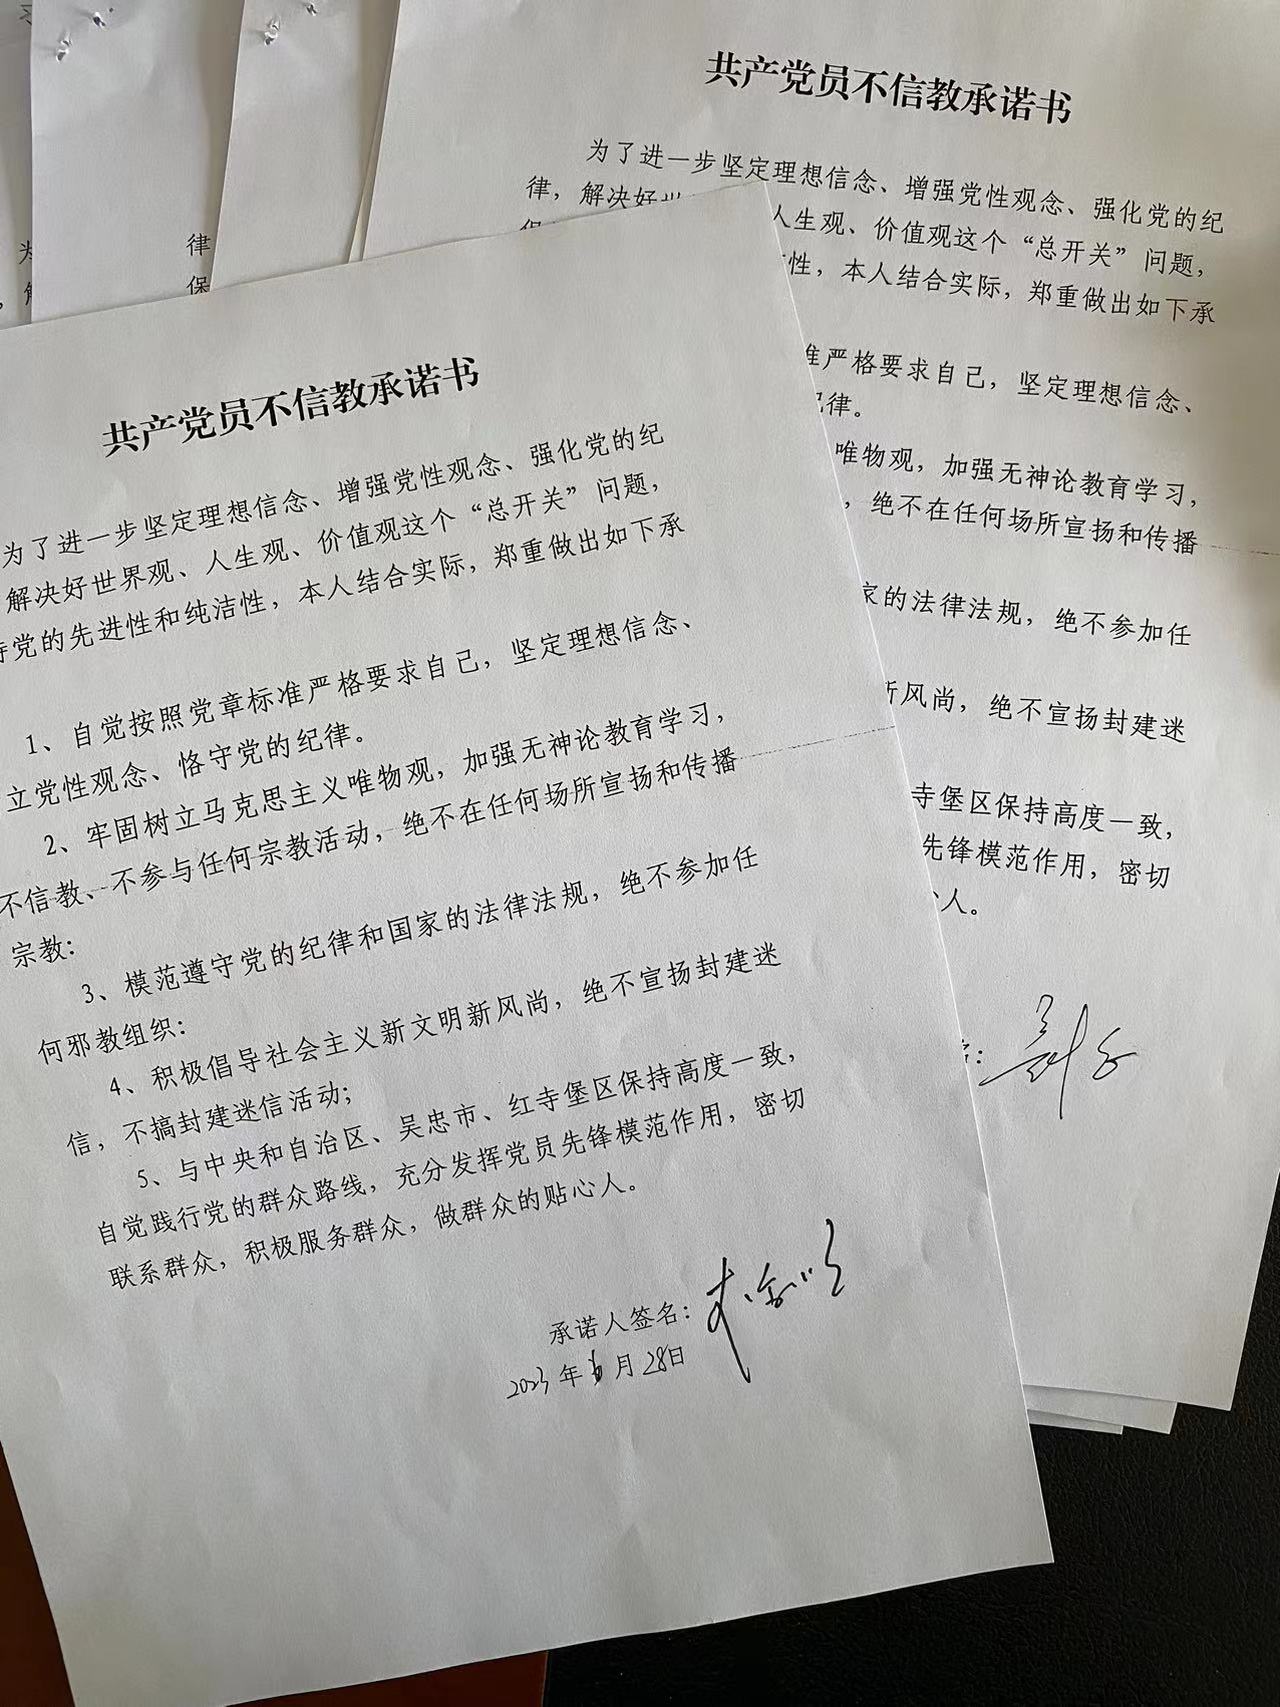 共产党员不信教承诺书
为了进一步坚定理想信念、增强党性观念、强化党的纪
律，解决好世
人生观、价值观这个“总开关”问题，
性，本人结合实际，郑重做出如下承
准严格要求自己，坚定理想信念、
纪律。
唯物观，加强无神论教育学习，
，绝不在任何场所宣扬和传播
家的法律法规，绝不参加任
新风尚，绝不宣扬封建迷
寺堡区保持高度一致，
先锋模范作用，密切
心人。
律
保
共产党员不信教承诺书
为了进一步坚定理想信念、增强党性观念、强化党的纪
解决好世界观、人生观、价值观这个“总开关”问题，
持党的先进性和纯洁性，本人结合实际，郑重做出如下承
1、自觉按照党章标准严格要求自己，坚定理想信念、
立党性观念、恪守党的纪律。
2、牢固树立马克思主义唯物观，加强无神论教育学习，
不信教、不参与任何宗教活动，绝不在任何场所宣扬和传播
宗教；
3、模范遵守党的纪律和国家的法律法规，绝不参加任
何邪教组织；
4、积极倡导社会主义新文明新风尚，绝不宣扬封建迷
信，不搞封建迷信活动；
5、与中央和自治区、吴忠市、红寺堡区保持高度一致，
自觉践行党的群众路线，充分发挥党员先锋模范作用，密切
联系群众，积极服务群众，做群众的贴心人。
承诺人签名：
2023年6月28日